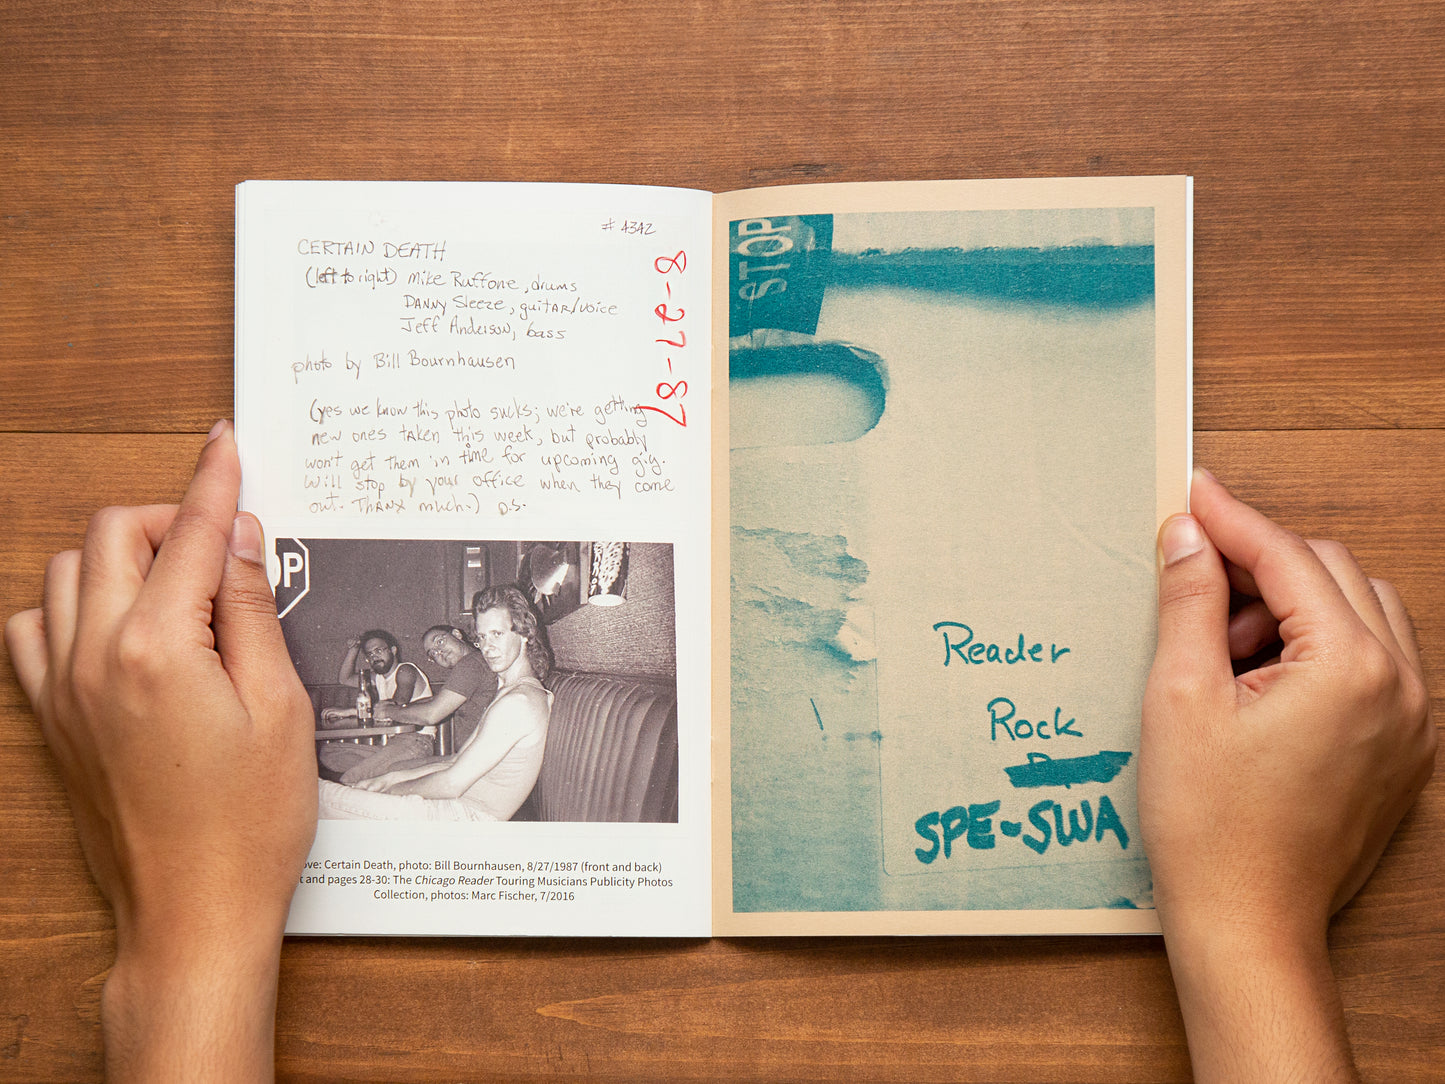 # 4342
CERTAIN DEATH
(left to right) Mike Ruffone, drums
DANNY Sleeze, guitAR/voice
Jeff Anderson, bass
photo by Bill Bournhausen
8-27-87
(yes we know this photo sucks; we're getting
new ones taken this week, but probably
won't get them in time for upcoming gig.
Will stop by your office when they come
out. THANX much.) D.S.
OP
ove: Certain Death, photo: Bill Bournhausen, 8/27/1987 (front and back)
t and pages 28-30: The Chicago Reader Touring Musicians Publicity Photos
Collection, photos: Marc Fischer, 7/2016
STOP
Reader
Rock
SPE-SWA